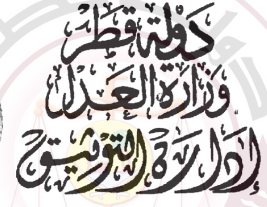 دَوْلَة قَطَر
وَزَارَة العَدْل
إدَارَة التَوثِيق